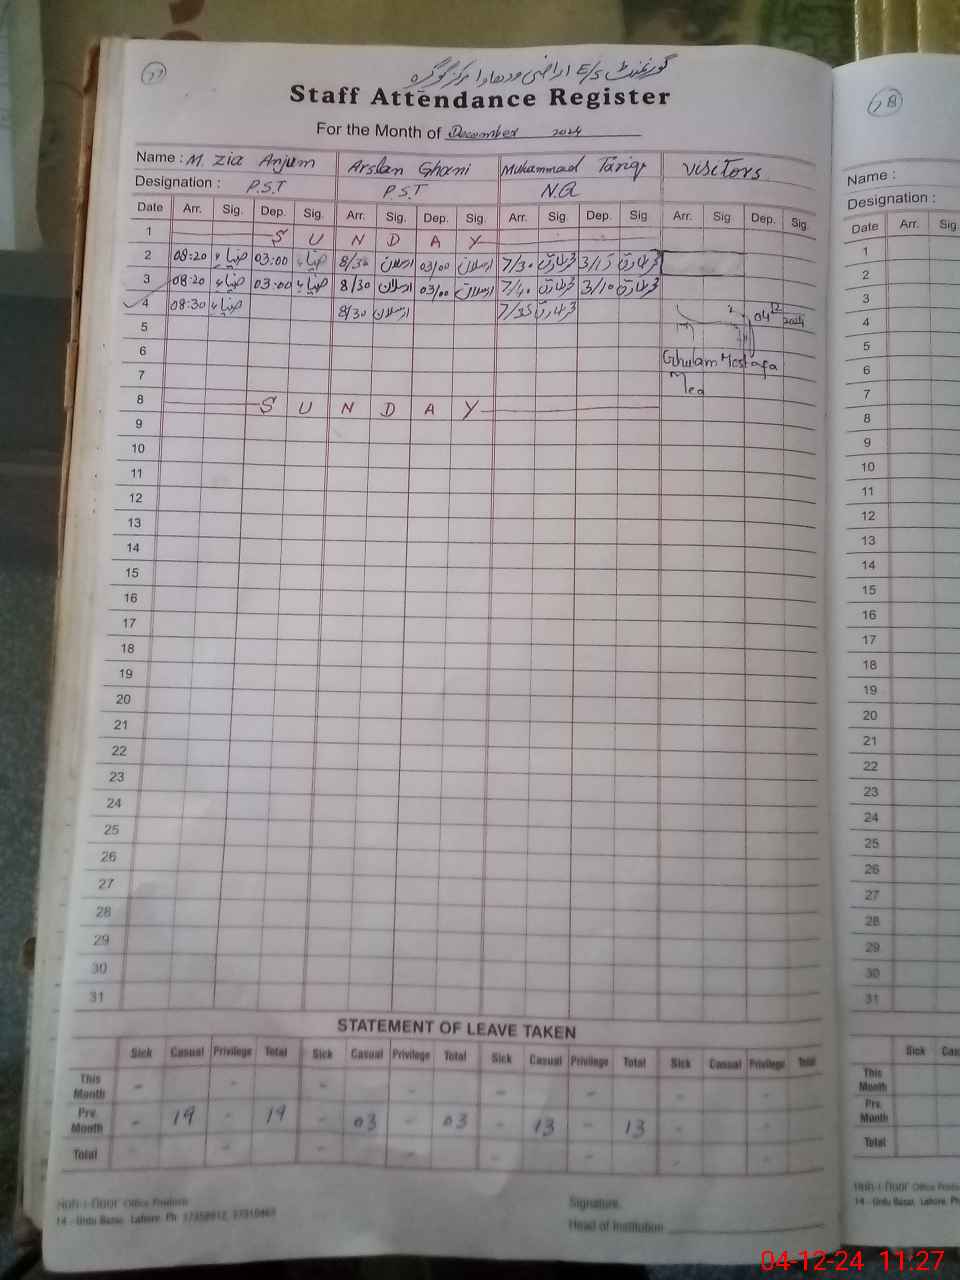 27
گورنمنٹ E/S اراضی ودھاوا مرکز گوگیرہ
Staff Attendance Register
For the Month of December 2024
Name : M. Zia Anjum Arslan Ghani Muhammad Tariq Visitors
Designation : P.S.T P.S.T N.Q
Date Arr. Sig. Dep. Sig. Arr. Sig. Dep. Sig. Arr. Sig. Dep. Sig. Arr. Sig Dep. Sig.
1 S U N D A Y
2 08:20 ضیاء 03:00 ضیاء 8/30 ارسلان 03/00 ارسلان 7/30 محمد طارق 3/15 محمد طارق
3 08:20 ضیاء 03:00 ضیاء 8/30 ارسلان 03/00 ارسلان 7/40 محمد طارق 3/10 محمد طارق
4 08:30 ضیاء 8/30 ارسلان 7/35 محمد طارق 04 12 2024
5
6 Ghulam Mostafa
7 Mea
8 S U N D A Y
9
10
11
12
13
14
15
16
17
18
19
20
21
22
23
24
25
26
27
28
29
30
31
STATEMENT OF LEAVE TAKEN
Sick Casual Privilege Total Sick Casual Privilege Total Sick Casual Privilege Total Sick Casual Privilege Total
This Month - - - - - -
Pre. Month - 19 - 19 - 03 - 03 - 13 - 13 - -
Total - - - - - -
Office Products
14 - Urdu Bazar, Lahore. Ph:
Signature.
Head of Institution
28
Name :
Designation :
Date Arr. Sig.
1
2
3
4
5
6
7
8
9
10
11
12
13
14
15
16
17
18
19
20
21
22
23
24
25
26
27
28
29
30
31
Sick
This Month
Pre. Month
Total
Office
14 - Urdu Bazar, Lahore. Ph
04-12-24 11:27